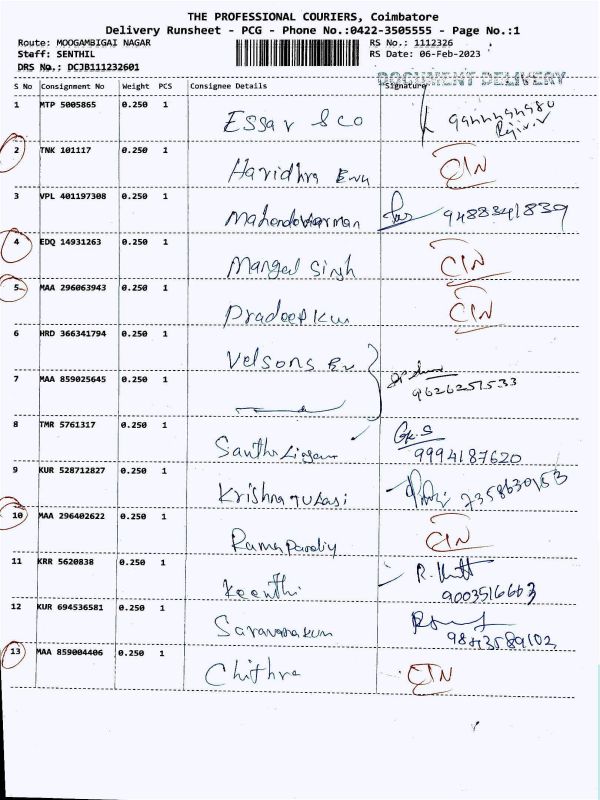 THE PROFESSIONAL COURIERS, Coimbatore
Delivery Runsheet - PCG - Phone No.:0422-3505555 - Page No.:1
Route: MOOGAMBIGAI NAGAR
RS No.: 1112326
Staff: SENTHIL
RS Date: 06-Feb-2023
DRS No.: DCJB111232601
DOCUMENT DELIVERY
S No Consignment No Weight PCS Consignee Details Signature
1 MTP 5005865 0.250 1 Essar & co
2 TNK 101117 0.250 1 Haridhra CIN
3 VPL 401197308 0.250 1 9488341839
4 EDQ 14931263 0.250 1 Mangal Singh CIN
5 MAA 296063943 0.250 1 Pradeep Kum CIN
6 HRD 366341794 0.250 1 Velsons
7 MAA 859025645 0.250 1 9626251533
8 TMR 5761317 0.250 1 9994187620
9 KUR 528712827 0.250 1 Krishna Tulasi 7358630153
10 MAA 296402622 0.250 1 CIN
11 KRR 5620838 0.250 1 Keerthi 9003516663
12 KUR 694536581 0.250 1 Saravana kum 9843589102
13 MAA 859004406 0.250 1 Chithra CIN